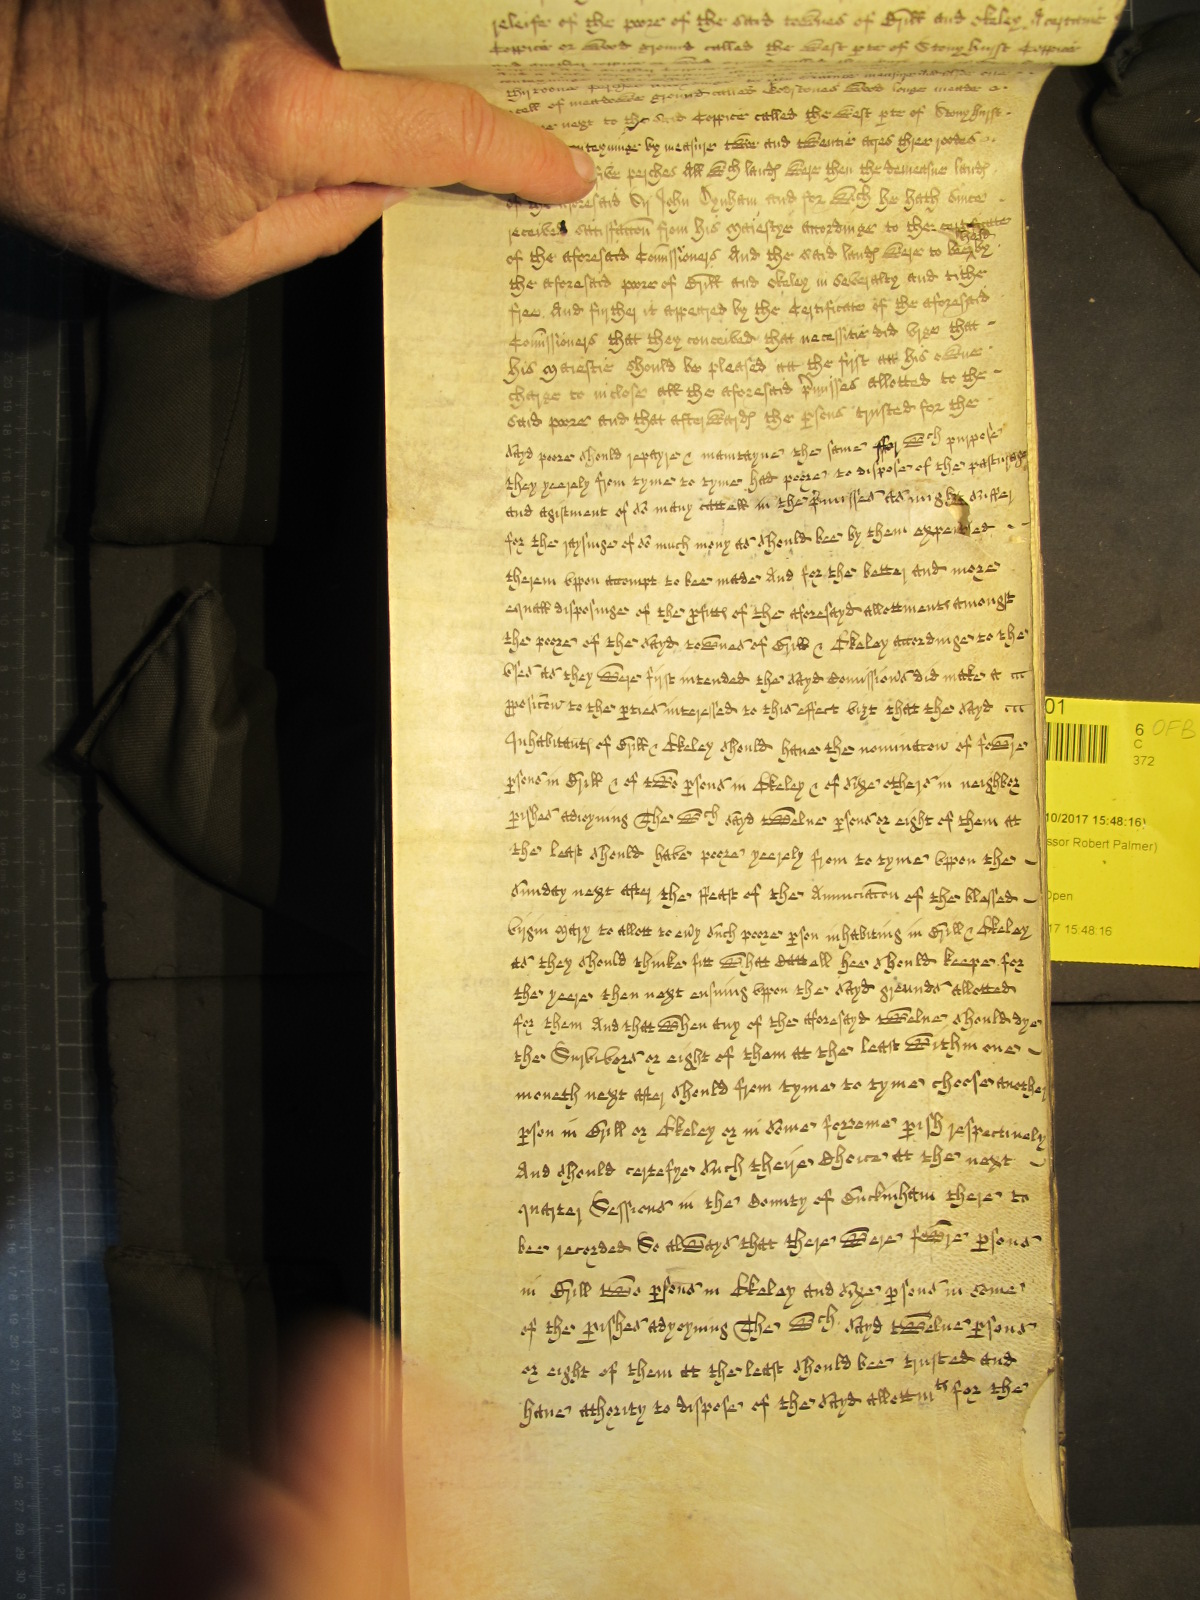 releife of the poore of the said townes of Brill and Okeley A certaine
Coppice or Wood ground called the West pte of Stonyhurst Coppice
cell of meadowe ground called
next to the said Coppice called the West pte of Stonyhurst
conteyninge by measure twoe and twentie acres three roodes
five perches All wch lands were then the demeasne lands
of the aforesaid Sr John Dynham and for wch he hath since
received satisfaccon from his Maiestye accordinge to the certificate
of the aforesaid Comissioners And the said lands were to bee held by
the aforesaid poore of Brill and Okeley in severalty and tithe
free. And further it appeared by the Certificate of the aforesaid
Comissioners that they conceived that necessitie did vrge that
his Maiestie should be pleased att the first att his owne
charge to inclose all the aforesaid pmisses allotted to the
said poore and that afterwards the psons trusted for the
sayd poore should repayre & maintayne the same ffor wch purpose
they yeerely from tyme to tyme had power to dispose of the pasturage
and agistment of so many cattell in the pmisses as might suffer
for the raysinge of so much mony as should bee by them expended
therein vppon accompt to bee made And for the better and more
equall disposinge of the pfitts of the aforesayd allottments amongst
the poore of the sayd townes of Brill & Okeley accordinge to the
vses as they were first intended the sayd Comissions did make a
pposicon to the pties interessed to this effect vizt that the sayd
Inhabitants of Brill & Okeley should have the nominacon of fowre
psons in Brill & of two psons in Okeley & of sixe others in neighbor
pishes adioyning The wch sayd twelve psons or eight of them att
the least should have power yeerely from to tyme vppon the
Sunday next after the ffeast of the Annunciacon of the blessed
virgin Mary to allott to evy such poore pson inhabiting in Brill & Okeley
as they should thinke fitt what Cattell hee should keepe for
the yeere then next ensuing vppon the sayd grounds allotted
for them And that when any of the aforesayd twelve should dye
the Survivors or eight of them att the least within one
moneth next after should from tyme to tyme choose another
pson in Brill or Okeley or in some forreine pish respectively
And should certefye such theire Choice att the next
quarter Sessions in the County of Buckinham there to
bee recorded So alwayes that there were fowre psons
in Brill two psons in Okeley and sixe psons in some
of the pishes adyoyning The wch sayd twelve psons
or eight of them att the least should bee trusted and
have athority to dispose of the sayd allottmts for the
01
6 OFB
C
372
10/2017 15:48:16
ssor Robert Palmer)
Open
17 15:48:16